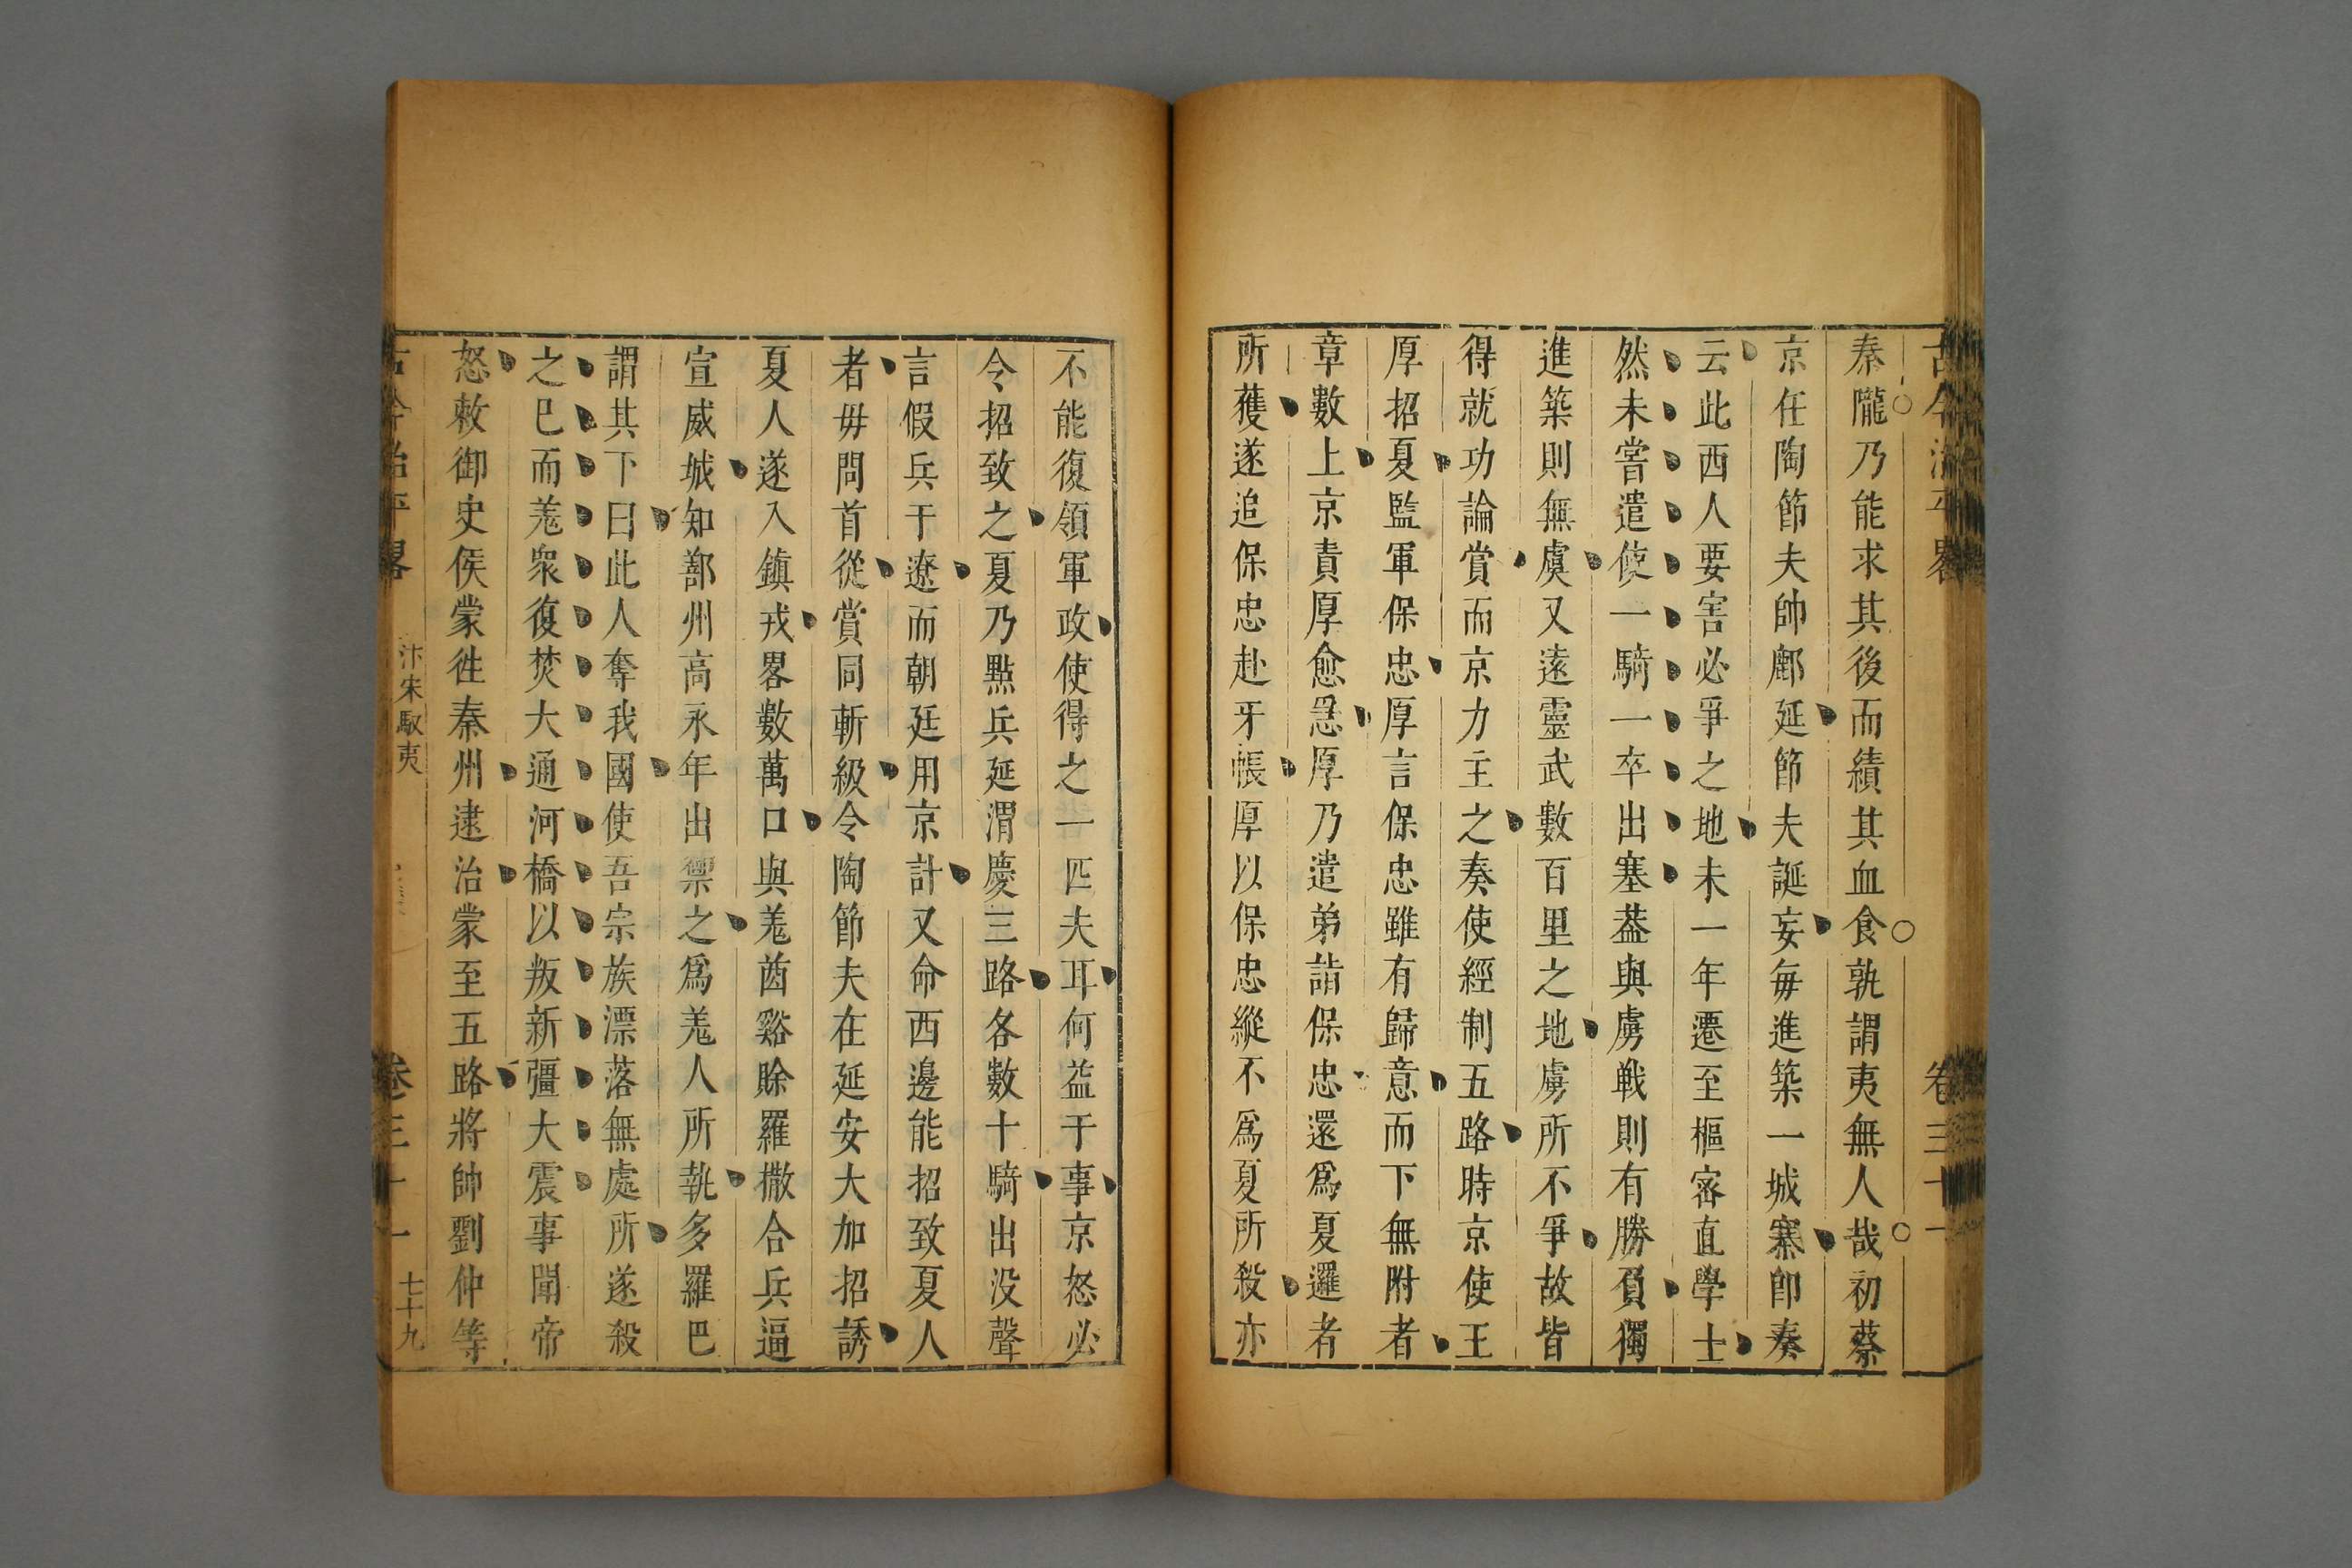 秦隴乃能求其後而績其血食孰謂夷無人哉初蔡
京任陶節夫帥鄜延節夫誕妄每進築一城寨卽奏
云此西人要害必爭之地未一年遷至樞密直學士
然未嘗遣使一騎一卒出塞葢與虜戰則有勝負獨
進築則無虞又遠靈武數百里之地虜所不爭故皆
得就功論賞而京力主之奏使經制五路時京使王
厚招夏監軍保忠厚言保忠雖有歸意而下無附者
章數上京責厚愈急厚乃遣弟詣保忠還爲夏邏者
所獲遂追保忠赴牙帳厚以保忠縱不爲夏所殺亦
不能復領軍政使得之一匹夫耳何益于事京怒必
令招致之夏乃點兵延渭慶三路各數十騎出没聲
言假兵于遼而朝廷用京計又命西邊能招致夏人
者毋問首從賞同斬級令陶節夫在延安大加招誘
夏人遂入鎮戎畧數萬口與羗酋谿賒羅撒合兵逼
宣威城知鄯州高永年出禦之爲羗人所執多羅巴
謂其下曰此人奪我國使吾宗族漂落無處所遂殺
之巳而羗衆復焚大通河橋以叛新疆大震事聞帝
怒敕御史侯蒙徃秦州逮治蒙至五路將帥劉仲等
古今治平畧 汴宋馭夷 卷三十一 七十九